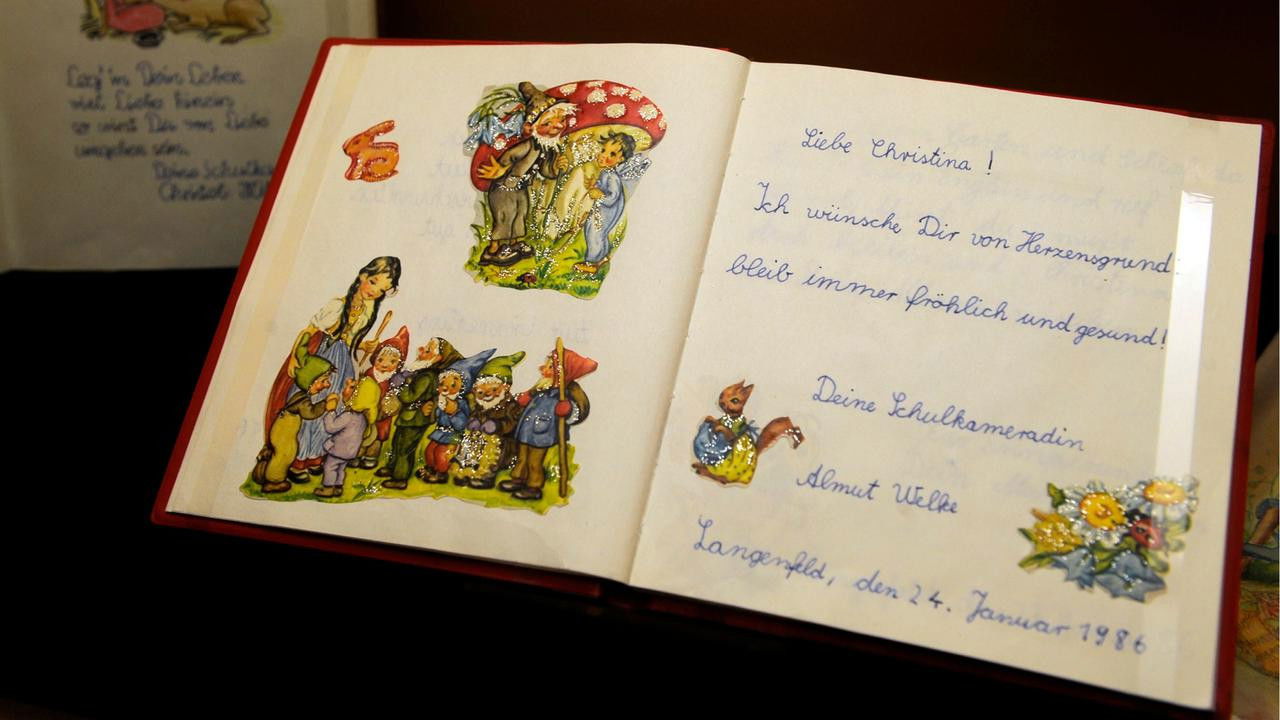 Leg' in Dein Leben
viel Liebe hinein
so wirst Du von Liebe
umgeben sein.
Deine
Liebe Christina !
Ich wünsche Dir von Herzensgrund
bleib immer fröhlich und gesund!
Deine Schulkameradin
Almut Welke
Langenfeld, den 24. Januar 1986